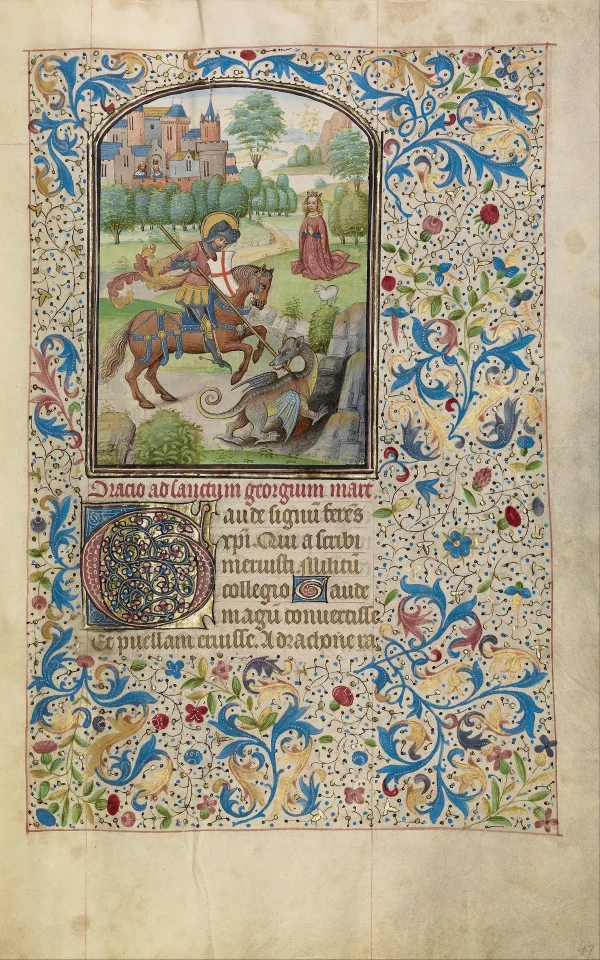 Oracio ad sanctum georgium mart
Gaude signū ferēs
xpi. Qui ascribi
meruisti. Militū
collegio Gaude
magū convertisse
Et puellam eruisse. A dracone ra
47